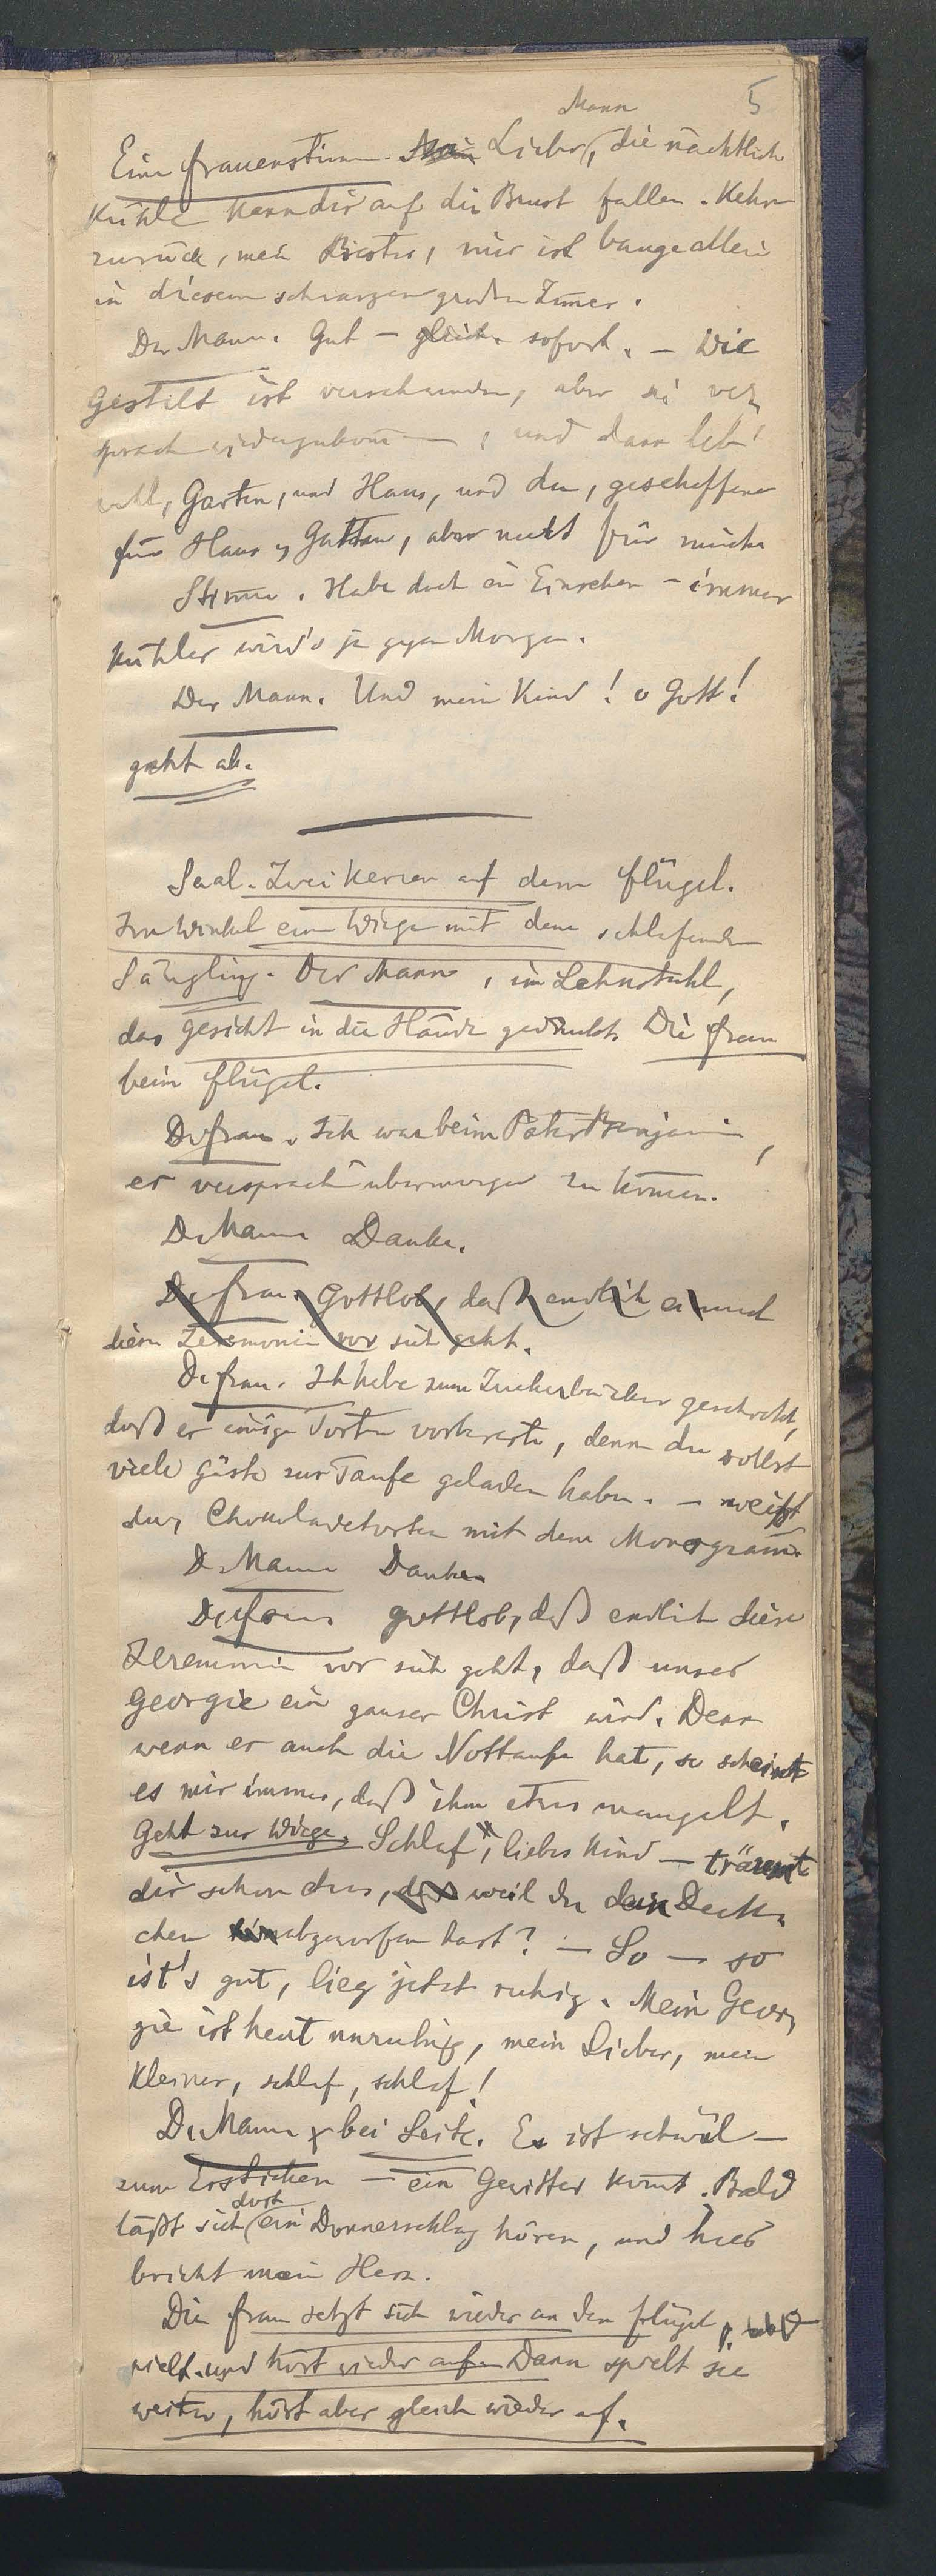 Mann 5
Eine Frauenstimme. Mein Lieber, die nächtliche
Kühle kann dir auf die Brust fallen. Kehre
zurück, mein, mir ist bange allein
in diesem schwarzen großen Zimer.
Der Mann. Gut – gleich. sofort. – Die
Gestalt ist verschwunden, aber sie ver¬
sprach wiederzukomen, und dann leb'
wohl, Garten, und Haus, und du, geschaffene
für Haus u Gatten, aber nicht für mich.
Stimme. Habe doch ein Einsehen – immer
kühler wird's ja gegen Morgen.
Der Mann. Und mein Kind! o Gott!
geht ab.
Saal. Zwei Kerzen auf dem Flügel.
Im Winkel eine Wiege mit dem schlafenden
Säugling. Der Mann, im Lehnstuhl,
das Gesicht in die Hände gedrückt. Die Frau
beim Flügel.
Die Frau. Ich war beim Pater Benjamin,
er versprach übermorgen zu komen.
Der Mann Danke.
Die Frau. Gottlob, daß endlich einmal
diese Zeremonie vor sich geht.
Die Frau. Ich habe zum Zuckerbäcker geschickt,
daß er einige Torten vorbereite, denn du sollst
viele Gäste zur Taufe geladen haben. – weißt
du, Chocoladetorten mit dem Monogram.
Der Mann Danke.
Die Frau. Gottlob, daß endlich diese
Zeremonie vor sich geht, daß unser
Georgie ein ganzer Christ wird. Denn
wenn er auch die Nottaufe hat, so scheint
es mir immer, daß ihm etwas mangelt.
Geht zur Wiege. Schlaf, liebes Kind – träumt
dir schon etwas, weil du dein Deck¬
chen abgeworfen hast? – So – so
ist's gut, lieg jetzt ruhig. Mein Geor¬
gie ist heut unruhig, mein Lieber, mein
Kleiner, schlaf, schlaf!
Der Mann bei Seite. Es ist schwül –
zum Ersticken – ein Gewitter komt. Bald
dort
läßt sich ein Donnerschlag hören, und hier
bricht mein Herz.
Die Frau setzt sich wieder an den Flügel,
spielt und hört wieder auf. Dann spielt sie
weiter, hört aber gleich wieder auf.